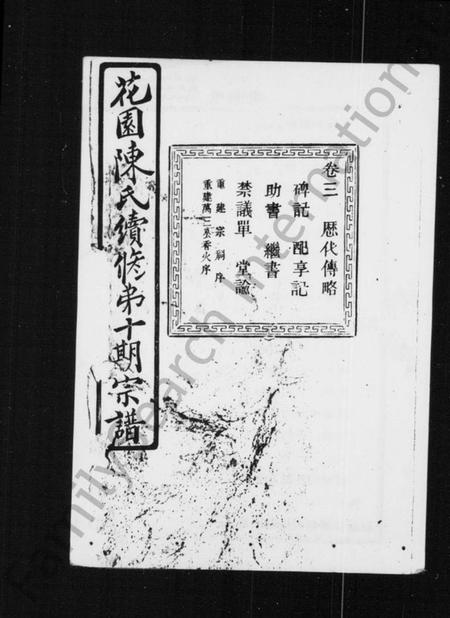 花園陳氏續修弟十期宗譜
卷三 歷代傳略
碑記 配享記
助書 繼書
禁議單 堂諭
重建宗祠序
重建萬二墓香火序
FamilySearch International